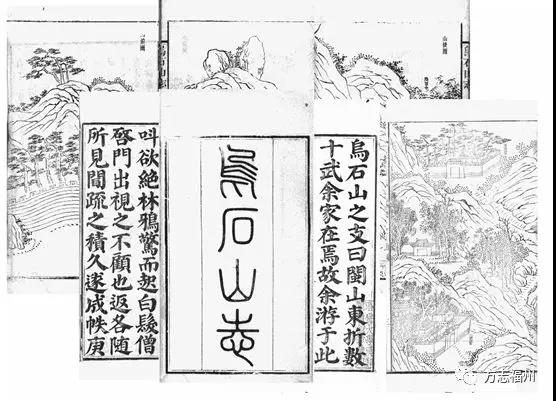 山後圖
烏石山之支曰閩山東折數
十武余家在焉故余游于此
烏石山志
叫欲絕林鴉驚而起白鬚僧
啓門出視之不顧也返各隨
所見聞疏之積久遂成帙庚
方志福州